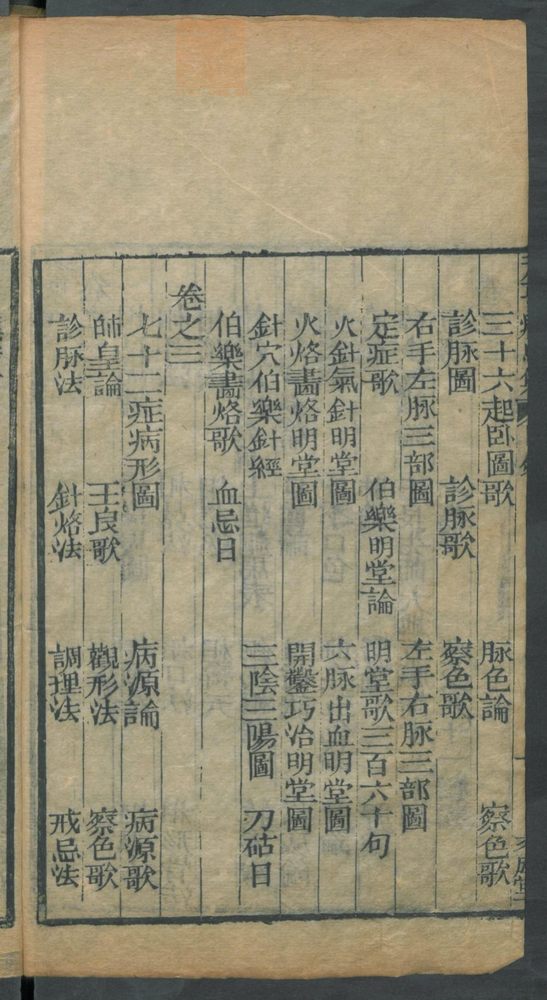 三十六起卧圖歌 脉色論 察色歌
診脉圖 診脉歌 察色歌
右手左脉三部圖 左手右脉三部圖
定症歌 伯樂明堂論 明堂歌三百六十句
火針氣針明堂圖 六脉出血明堂圖
火烙畵烙明堂圖 開鑿巧治明堂圖
針穴伯樂針經 三陰三陽圖 刀砧日
伯樂畵烙歌 血忌日
卷之三
七十二症病形圖 病源論 病源歌
師皇論 王良歌 觀形法 察色歌
診脉法 針烙法 調理法 戒忌法